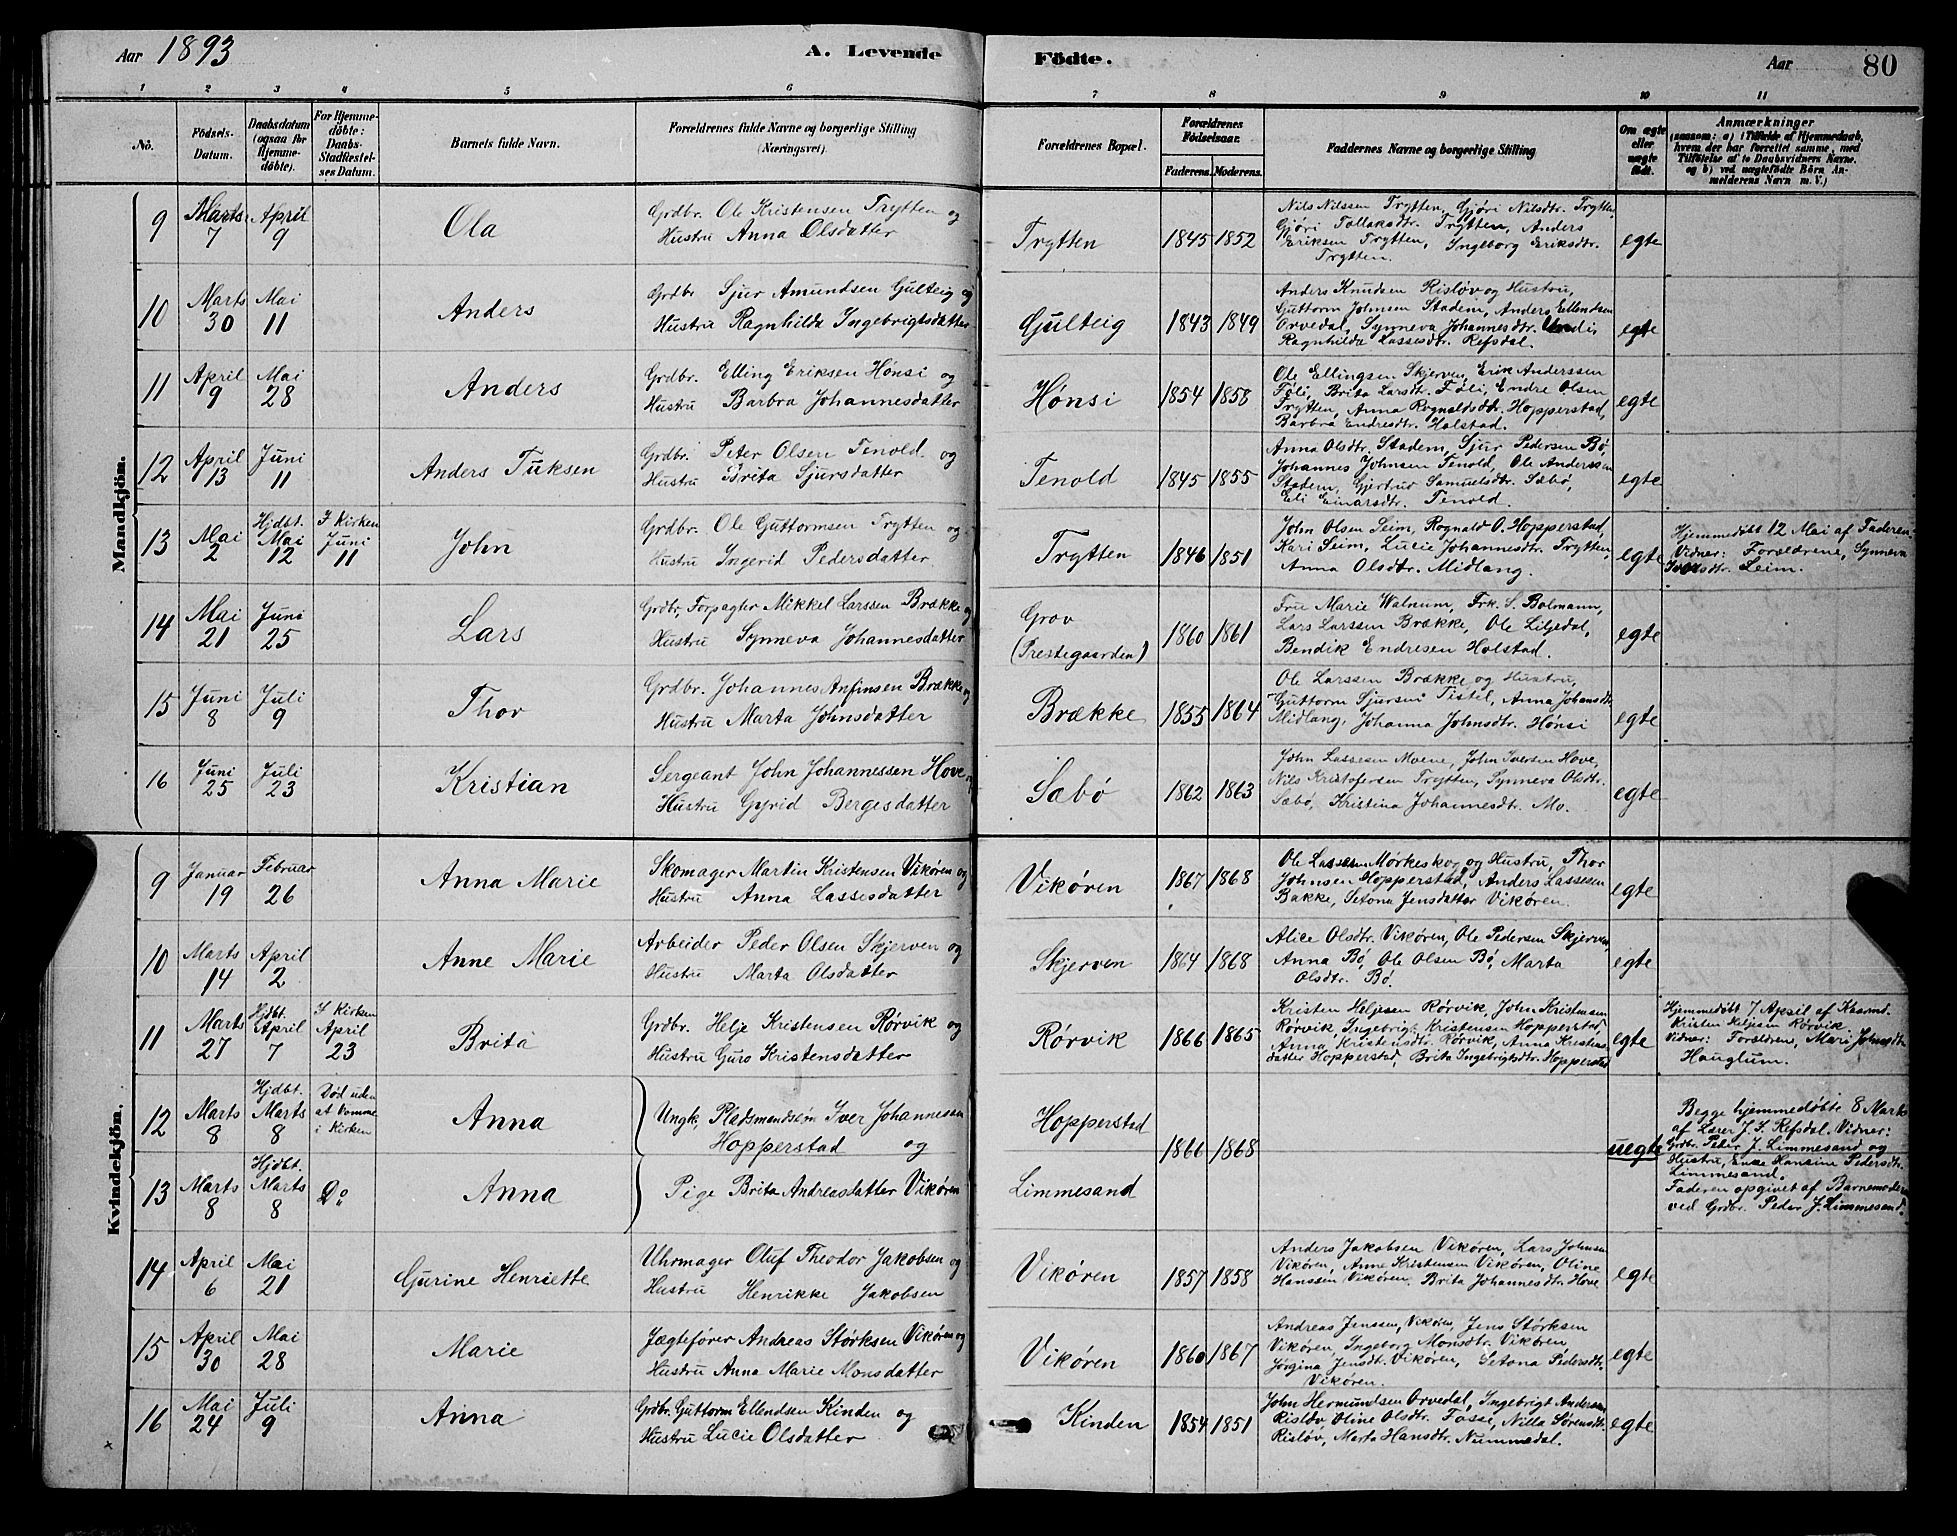 Aar 1893
A. Levende
Födte.
Aar
80
1 2 3 4 5 6 7 8 9 10 11
No.
Födsels-
Datum.
Daabsdatum
(ogsaa for
Hjemme-
döbte).
For Hjemme-
döbte:
Daabs-
Stadfæstel-
ses Datum.
Barnets fulde Navn.
Forældrenes fulde Navne og borgerlige Stilling
(Næringsvei).
Forældrenes Bopæl.
Forældrenes
Födselsaar.
Faderens. Moderens.
Faddernes Navne og borgerlige Stilling
Om ægte
eller
uægte
födt.
Anmærkninger
(saasom: a) i Tilfælde af Hjemmedaab,
hvem der har forrettet samme, med
Tilföielse af to Daabsvidners Navne,
og b) ved uægtefödte Börn An-
melderens Navn m. V.)
Mandkjön.
9
Marts
7
April
9
Ola
Grdbr. Ole Kristensen Trytten og
Hustru Anna Olsdatter
Trytten
1845 1852
Nils Nilssen Trytten, Gjøri Nilsdtr. Trytten,
Gjøri Tollaksdtr. Trytten, Anders
Eriksen Trytten, Ingeborg Eriksdtr.
Trytten.
egte
10
Marts
30
Mai
11
Anders
Grdbr Sjur Amundsen Gulteig og
Hustru Ragnhilda Ingebrigtsdatter
Gulteig
1843 1849
Anders Knudsen Risløv og Hustru,
Guttorm Johnsen Stadem, Anders Ellendsen
Orvedal, Synneva Johannesdtr. Undi,
Ragnhilda Lassesdtr. Refsdal.
egte
11
April
9
Mai
28
Anders
Grdbr. Elling Eriksen Hønsi og
Hustru Barbra Johannesdatter
Hønsi
1854 1858
Ole Ellingsen Skjerven, Erik Anderssen
Føli, Brita Larsdtr. Føli, Endre Olsen
Trytten, Anna Rognaldsdtr. Hopperstad,
Barbra Endresdtr. Holstad.
egte
12
April
13
Juni
11
Anders Tuksen
Grdbr. Peter Olsen Tenold og
Hustru Brita Sjursdatter
Tenold
1845 1855
Anna Olsdtr. Stadem, Sjur Pedersen Bø,
Johannes Johnsen Tenold, Ole Anderssen
Stadem, Gjertrud Samuelsdtr. Sæbø,
Eli Einarsdtr. Tenold.
egte
13
Mai
2
Hjdbt.
Mai
12
I Kirken
Juni
11
John
Grdbr. Ole Guttormsen Trytten og
Hustru Ingerid Pedersdatter
Trytten
1846 1851
John Olsen Seim, Rognald O. Hopperstad,
Kari Seim, Lucie Johannesdtr. Trytten,
Anna Olsdtr. Midlang.
egte
Hjemmedøbt 12 Mai af Faderen.
Vidner: Forældrene, Synneva
Seim.
14
Mai
21
Juni
25
Lars
Grdbr, Forpagter Mikkel Larssen Brække og
Hustru Synneva Johannesdatter
Grov
(Prestegaarden)
1860 1861
Fru Marie Walnum, Frk. S. Bolmann,
Lars Larssen Brække, Ole Liljedal,
Bendik Endresen Holstad.
egte
15
Juni
8
Juli
9
Thor
Grdbr. Johannes Anfinsen Brække og
Hustru Marta Johnsdatter
Brække
1855 1864
Ole Larssen Brække og Hustru,
Guttorm Sjursen Tistel, Anna Johansdtr.
Midlang, Johanna Johnsdtr. Hønsi
egte
16
Juni
25
Juli
23
Kristian
Sergeant John Johannessen Hove og
Hustru Gyrid Bergesdatter
Sæbø
1862 1863
John Lassesen Moene, John Iversen Hove,
Nils Kristofersen Trytten, Synneva Olsdtr.
Sæbø, Kristina Johannesdtr. Mo.
egte
Kvindekjön.
9
Januar
19
Februar
26
Anna Marie
Skomager Martin Kristensen Vikøren og
Hustru Anna Lassesdatter
Vikøren
1867 1868
Ole Lassesen Mørkeskog og Hustru, Thor
Johnsen Hopperstad, Anders Lassesen
Bakke, Setona Jensdatter Vikøren.
egte
10
Marts
14
April
2
Anne Marie
Arbeider Peder Olsen Skjerven og
Hustru Marta Olsdatter
Skjerven
1864 1868
Alice Olsdtr. Vikøren, Ole Pedersen Skjerven,
Anna Bø, Ole Olsen Bø, Marta
Olsdtr. Bø.
egte
11
Marts
27
Hjdbt.
April
7
I Kirken
April
23
Brita
Grdbr. Helje Kristensen Rørvik og
Hustru Guro Kristensdatter
Rørvik
1866 1865
Kristen Heljesen Rørvik, John Kristensen
Rørvik, Ingebrigt Kristensen Hopperstad,
Anna Kristensdtr. Rørvik, Anna Kristens-
datter Hopperstad, Brita Ingebrigtsdtr. Hopperstad
egte
Hjemmedøbt 7 April af Kaarmd.
Kristen Heljesen Rørvik
Vidner: Forældrene, Mari Johnsdtr.
Hauglum.
12
Marts
8
Hjdbt.
Marts
8
Død uden
at komme
i Kirken
Anna
Ungk, Pladsmandssøn Iver Johannesen
Hopperstad og
Hopperstad
1866 1868
uegte
Begge hjemmedøbte 8 Marts
af Lærer J. S. Refsdal. Vidner:
Grdbr. Peder J. Limmesand og
Hustru, Enke Hansine Pedersdtr.
Limmesand.
Faderen opgivet af Barnemoderen
ved Grdbr. Peder J. Limmesand.
13
Marts
8
Hjdbt.
Marts
8
Do
Anna
Pige Brita Andreasdatter Vikøren
Limmesand
14
April
6
Mai
21
Gurine Henriette
Uhrmager Oluf Theodor Jakobsen og
Hustru Henrikke Jakobsen
Vikøren
1857 1858
Anders Jakobsen Vikøren, Lars Johnsen
Vikøren, Anne Kristensen Vikøren, Oline
Hanssen Vikøren, Brita Johannesdtr. Hove
egte
15
April
30
Mai
28
Marie
Jægtefører Andreas Størksen Vikøren og
Hustru Anna Marie Monsdatter
Vikøren
1860 1867
Andreas Jenssen, Vikøren, Jens Størksen
Vikøren, Ingeborg Monsdtr. Vikøren
Jørgina Jensdt. Vikøren, Setona Pedersdtr.
Vikøren.
egte
16
Mai
24
Juli
9
Anna
Grdbr. Guttorm Ellendsen Kinden og
Hustru Lucie Olsdatter
Kinden
1854 1851
John Hermundsen Orvedal, Ingebrigt Andersen
Risløv, Oline Olsdtr. Fosse, Nilla Sørensdtr.
Risløv, Marta Hansdtr. Nummedal.
egte